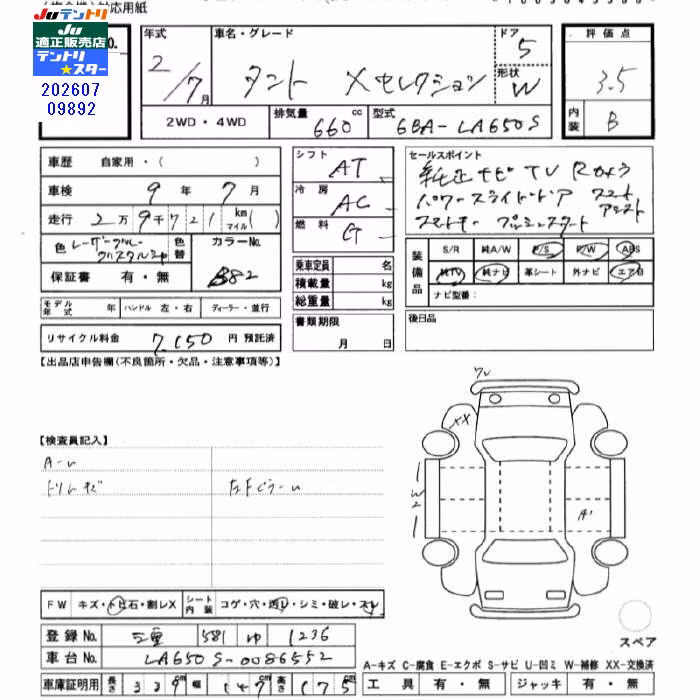 対応用紙
Juテントリ
Ju
適正販売店
テントリ
★スター
202607
09892
年式
2/7月
車名・グレード
タント Xセレクション
ドア
5
形状
W
評価点
3.5
内装
B
2WD・4WD
排気量 660 cc
型式 6BA-LA650S
車歴 自家用・( )
車検 9年 7月
走行 2万9千721 km マイル( )
色 レーザーブルークリスタルシャ
色替
カラーNo. B82
保証書 有・無
シフト AT
冷房 AC
燃料 G
乗車定員 名
積載量 kg
総重量 kg
書類期限
月 日
セールスポイント
純正ナビ TV Rカメラ
パワースライドドア スマートアシスト
スマートキー プッシュスタート
装備品
S/R 純A/W P/S P/W ABS
純TV 純ナビ 革シート 外ナビ エアB
ナビ型番:
後日品
モデル年式 年 ハンドル 左・右 ディーラー・並行
リサイクル料金 7,150 円 預託済
【出品店申告欄(不良箇所・欠品・注意事項等)】
【検査員記入】
A-U
トリムキズ
XX
W2
A1
FW キズ・トビ石・割レX
シート内装 コゲ・穴・透レ・シミ・破レ・スレ
登録No. 三重 581 ゆ 1236
車台No. LA650S-0086552
車庫証明用 長さ 339 cm 幅 147 cm 高さ 175 cm
スペア
A-キズ C-腐食 E-エクボ S-サビ U-凹ミ W-補修 XX-交換済
工具 有・無 ジャッキ 有・無